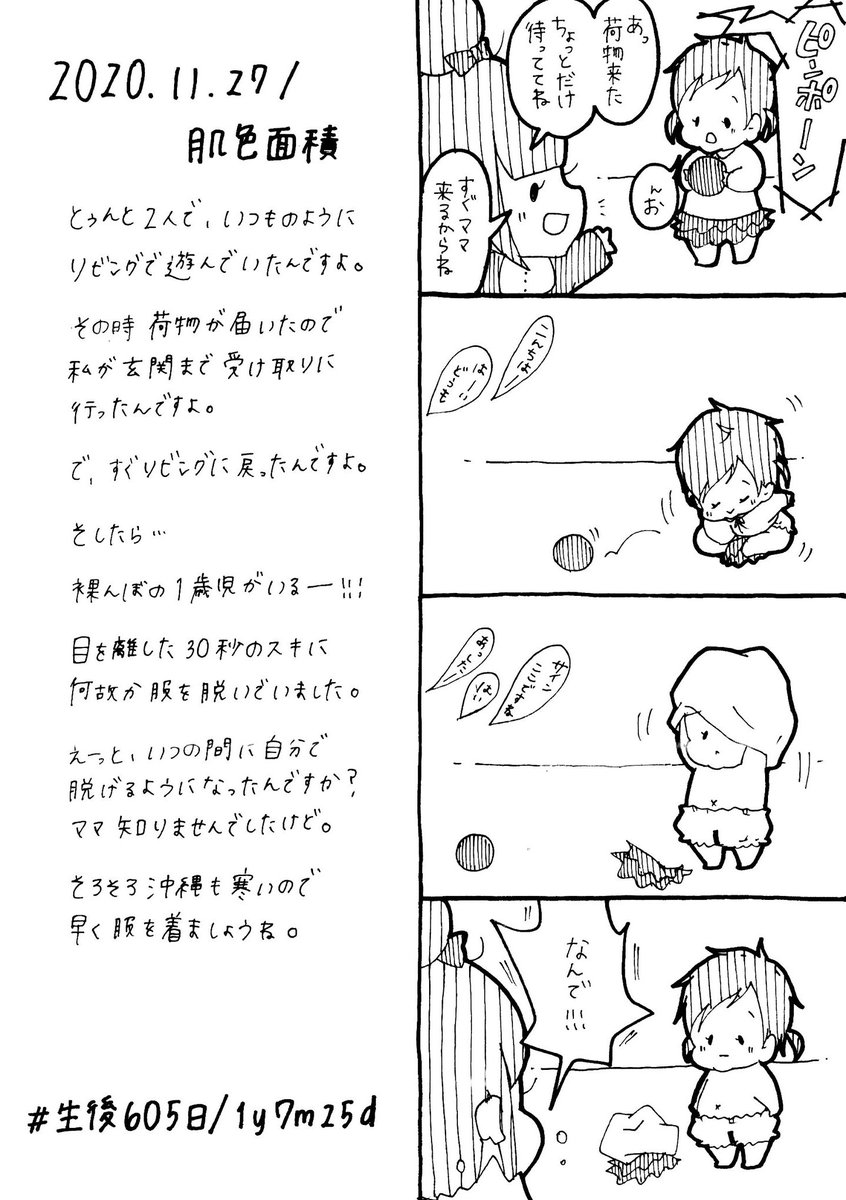 2020.11.27/
肌色面積
とぅんと2人で、いつものように
リビングで遊んでいたんですよ。
その時 荷物が届いたので
私が玄関まで受け取りに
行ったんですよ。
で、すぐリビングに戻ったんですよ。
そしたら…
裸んぼの1歳児がいるー!!!
目を離した30秒のスキに
何故か服を脱いでいました。
えーっと、いつの間に自分で
脱げるようになったんですか?
ママ知りませんでしたけど。
そろそろ沖縄も寒いので
早く服を着ましょうね。
#生後605日/1y7m25d
ピンポーン
あっ
荷物来た
ちょっとだけ
待っててね
んお
すぐママ
来るからね
こんちはー
はーい
どうも
サイン
ここですね
はい
あっしたー
なんで!!!